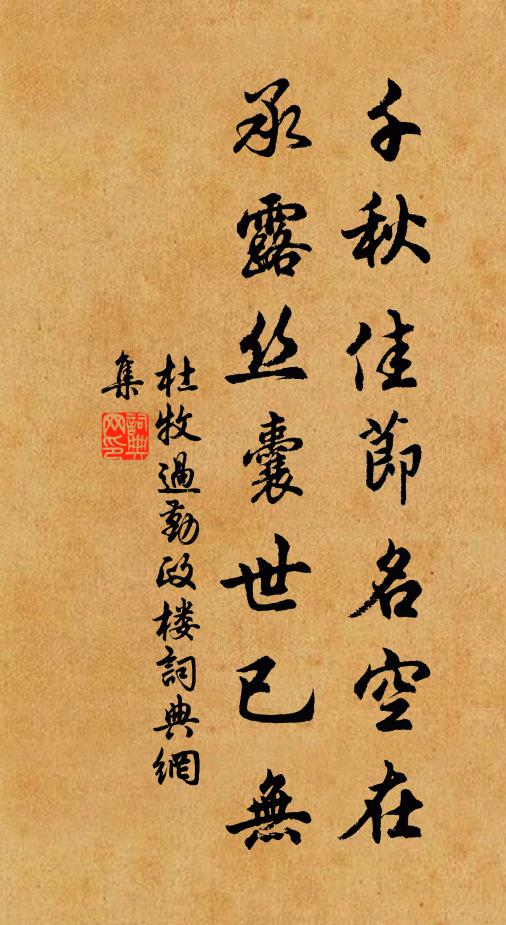 千秋佳節名空在
承露丝囊世已無
杜牧過勤政楼詞典網
集
詞典
网印